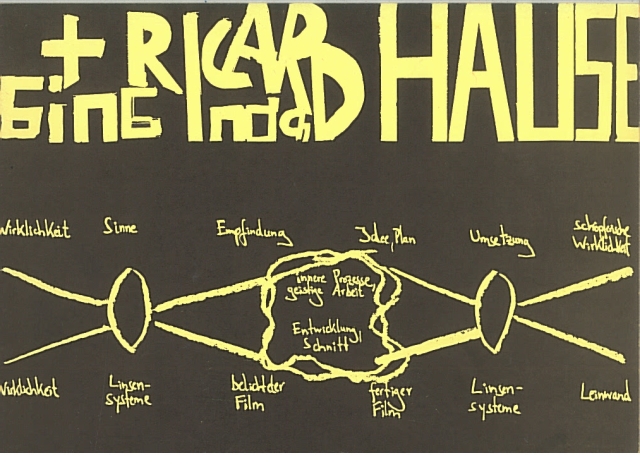 + RICARD HAUSE
GinG nach
Wirklichkeit Sinne Empfindung Idee, Plan Umsetzung schöpferische
Wirklichkeit
innere Prozesse,
geistige Arbeit
Entwicklung,
Schnitt
Wirklichkeit Linsen-
systeme
belichteter
Film
fertiger
Film
Linsen-
systeme
Leinwand